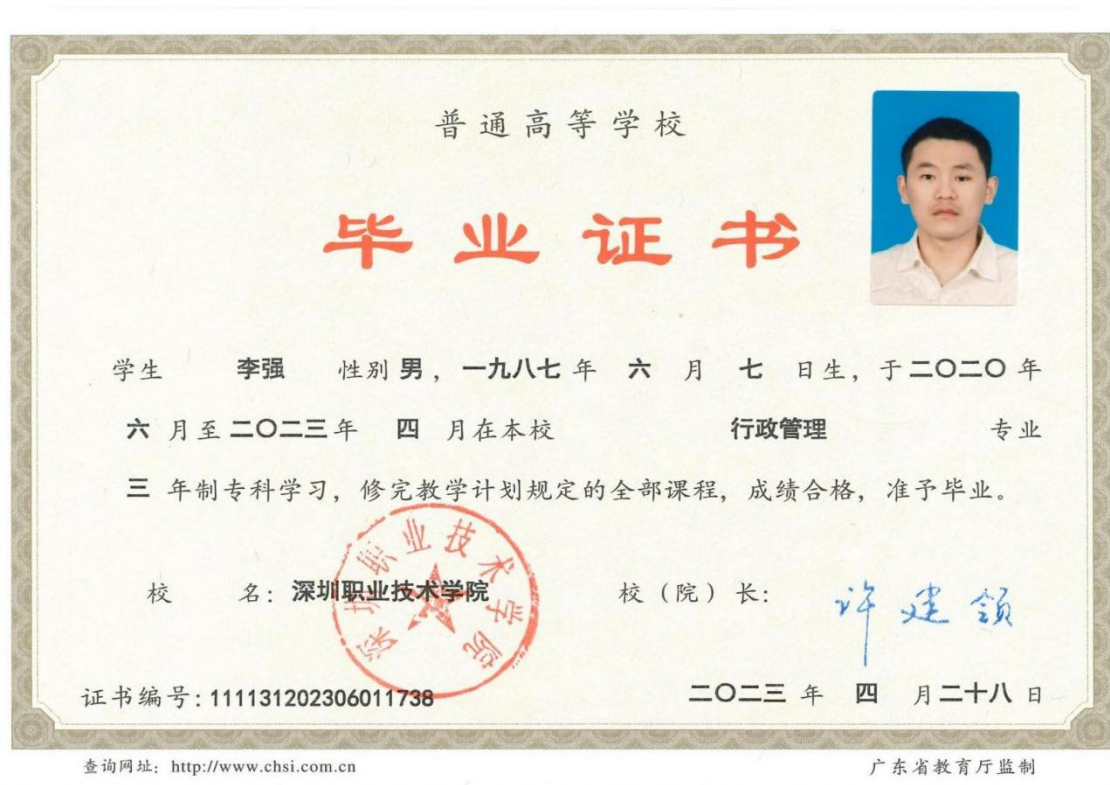 普通高等学校
毕业证书
学生 李强 性别 男，一九八七 年 六 月 七 日生，于 二〇二〇 年
六 月至 二〇二三 年 四 月在本校 行政管理 专业
三 年制专科学习，修完教学计划规定的全部课程，成绩合格，准予毕业。
深圳职业技术学院
校 名：深圳职业技术学院 校（院）长： 许建领
证书编号：111131202306011738 二〇二三 年 四 月 二十八 日
查询网址：http://www.chsi.com.cn 广东省教育厅监制